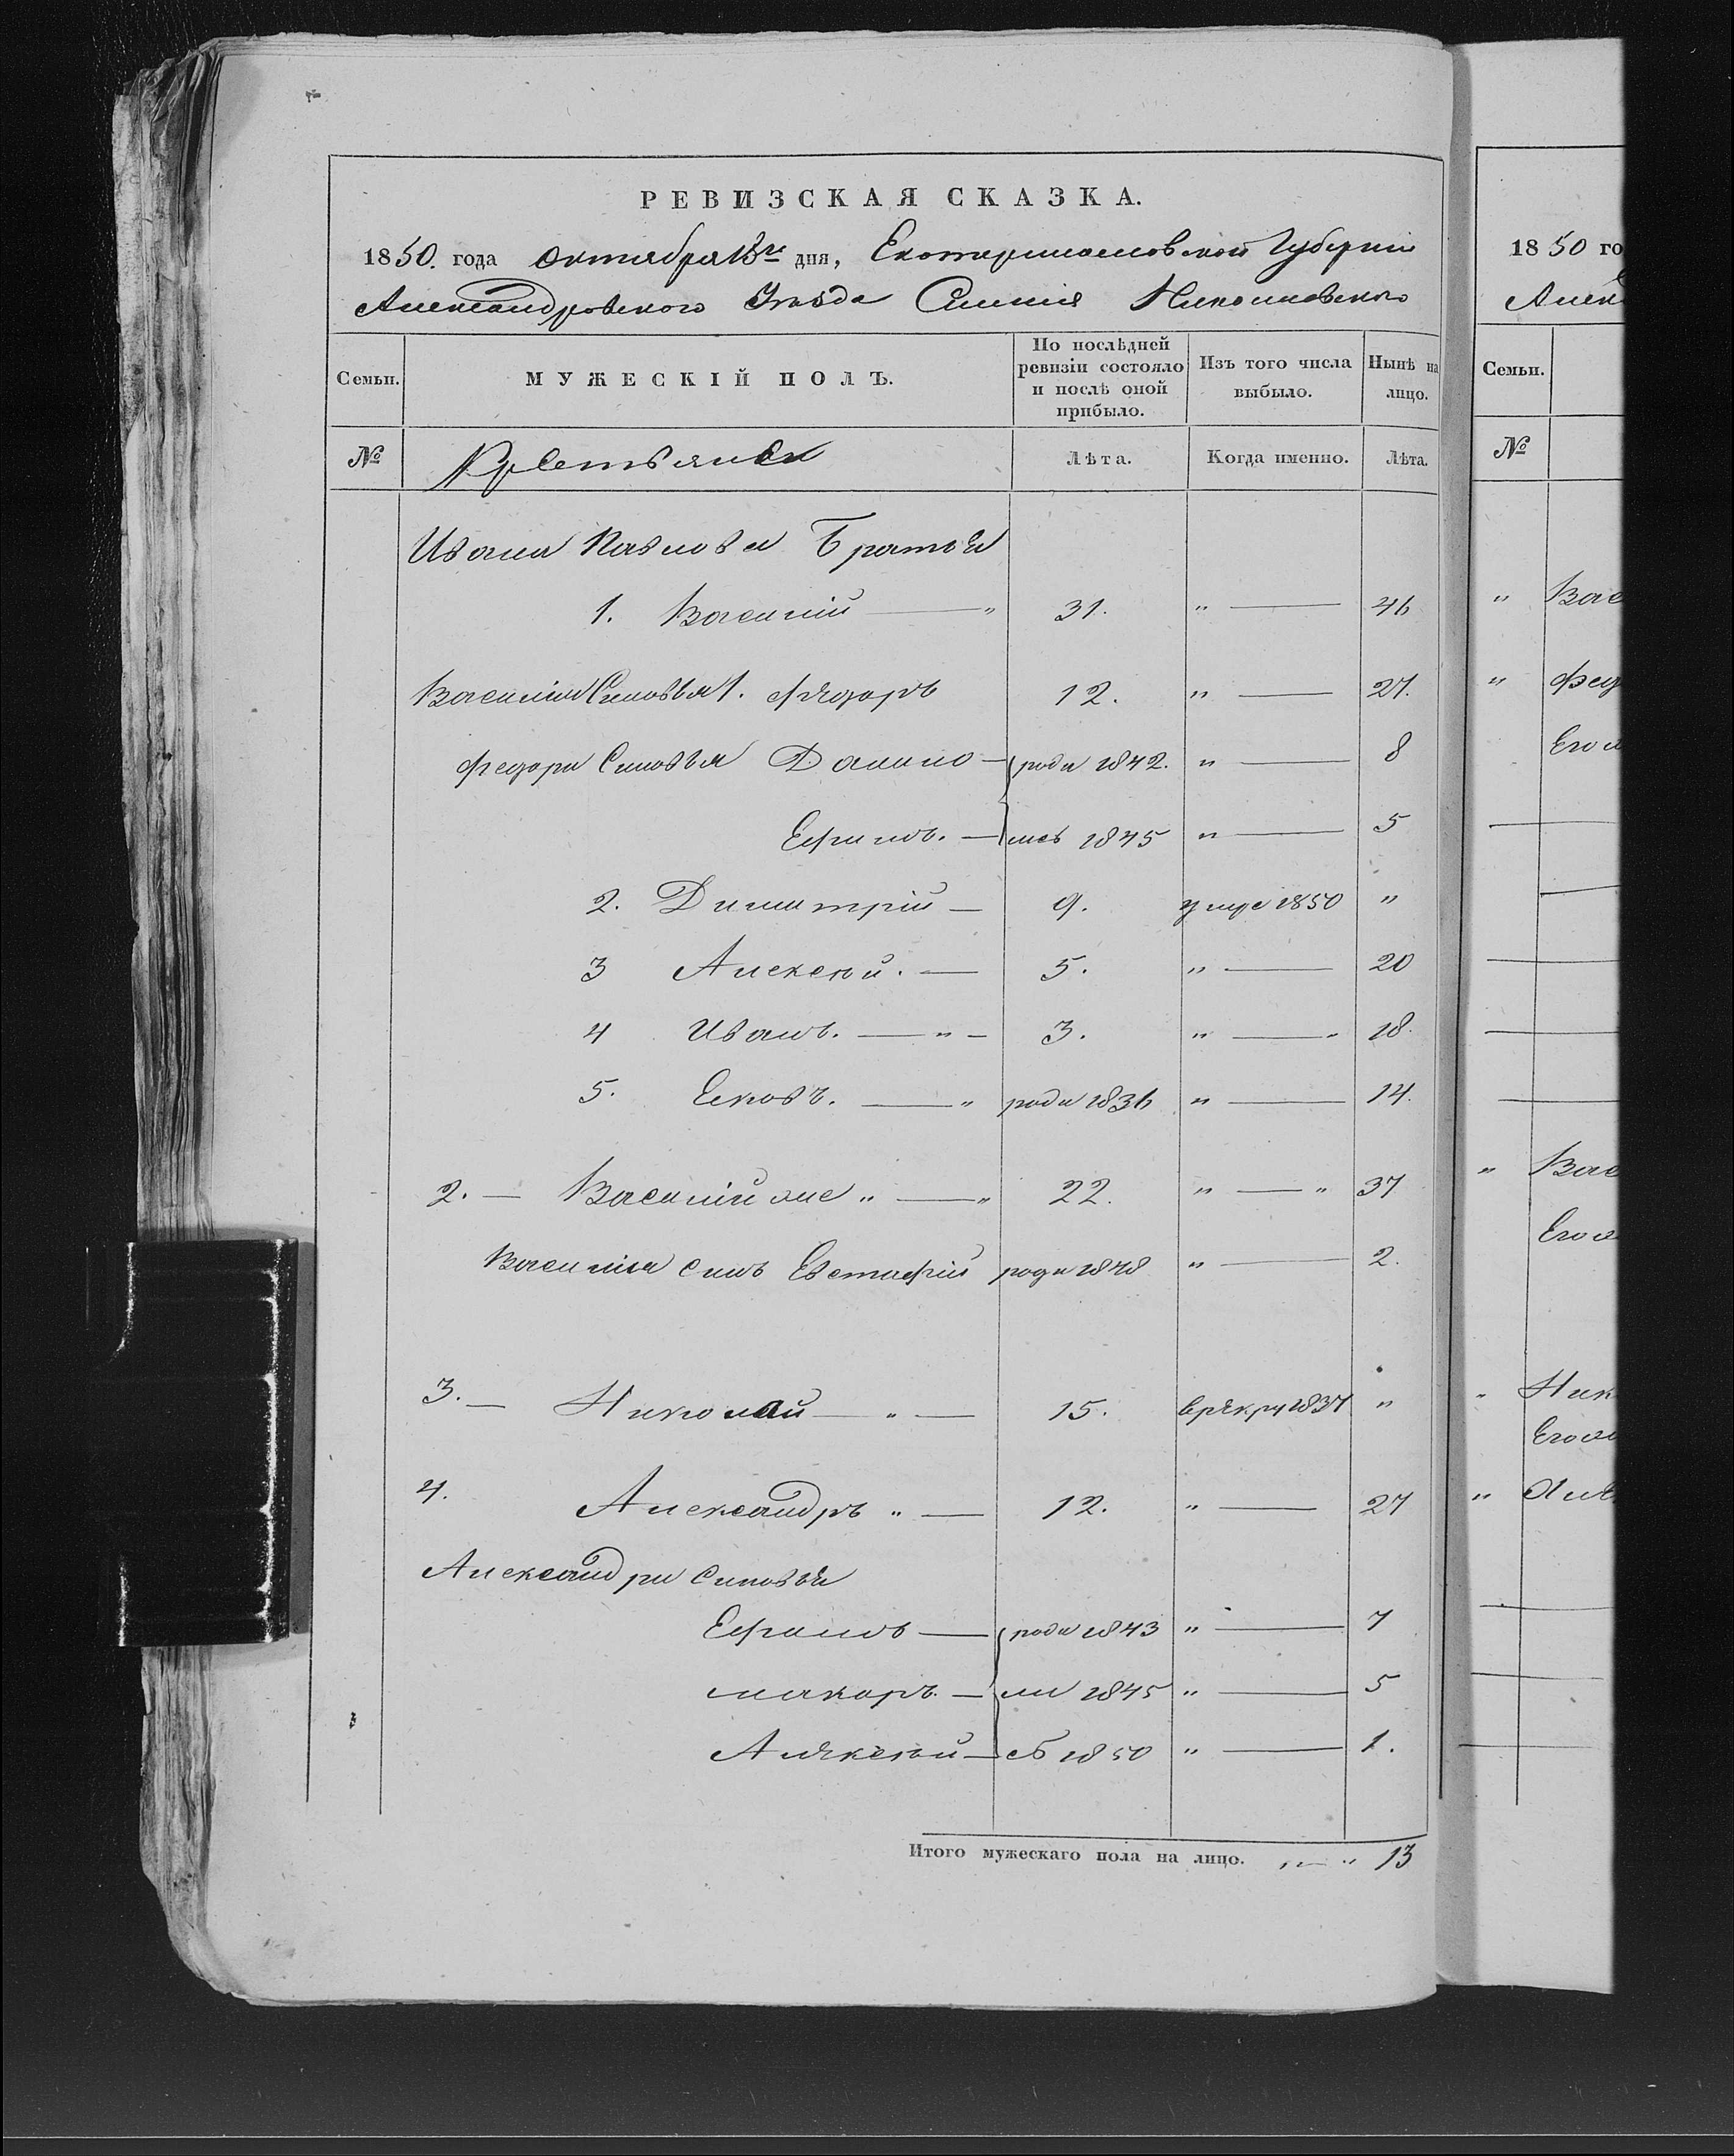 РЕВИЗСКАЯ СКАЗКА.
1850. года октября 13го дня, Екатеринославской Губернии
Александровского Уезда Селения Николаевского
Семьи. МУЖЕСКІЙ ПОЛЪ. По послѣдней ревизіи состояло и послѣ оной прибыло. Изъ того числа выбыло. Нынѣ на лицо.
№ Лѣта. Когда именно. Лѣта.
Ивана Павлова Братья
1. Василій — " 31. " — 46
Василия Синовья 1. Фядоръ 12. " — 27.
Федора Синовья Данило — роди 1842. " — 8
Ефимъ. — лсь 1845 " — 5
2. Димитрій — 9. умре 1850 "
3 Алексей. — 5. " — 20
4 Иванъ. — " — 3. " — " 18.
5. Ековъ. — " роди 1836 " — 14.
2. — Василій же " — " 22. " — " 37
Василія синъ Евстафій роди 1848 " — 2.
3. — Николай — " — 15. врякру 1837 "
4. Александръ " — 12. " — 27
Александра синовья
Ефимъ — роди 1843 " — 7
макаръ. — ли 1845 " — 5
Аляксей — сь 1850 " — 1.
Итого мужескаго пола на лицо. " — " 13
1850 го
Алек
Семьи.
№
" Вас
" Фед
Его ж
" Вас
Его ж
" Ник
Его ж